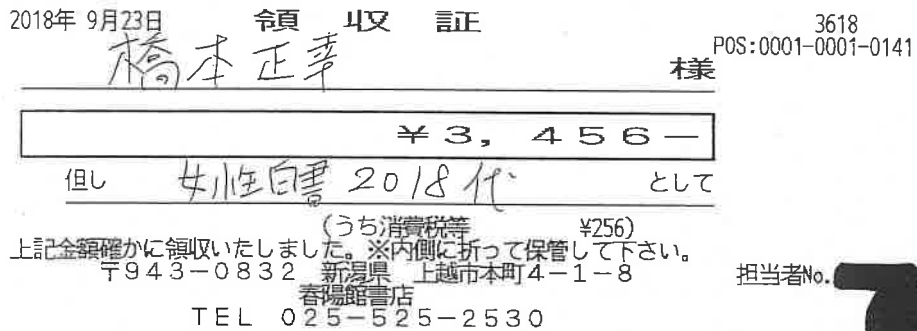 2018年 9月23日 領収証 3618
POS:0001-0001-0141
橋本正幸 様
¥3,456−
但し 女性白書 2018 代 として
(うち消費税等 ¥256)
上記金額確かに領収いたしました。※内側に折って保管して下さい。
〒943-0832 新潟県 上越市本町4-1-8
春陽館書店
TEL 025-525-2530
担当者No.